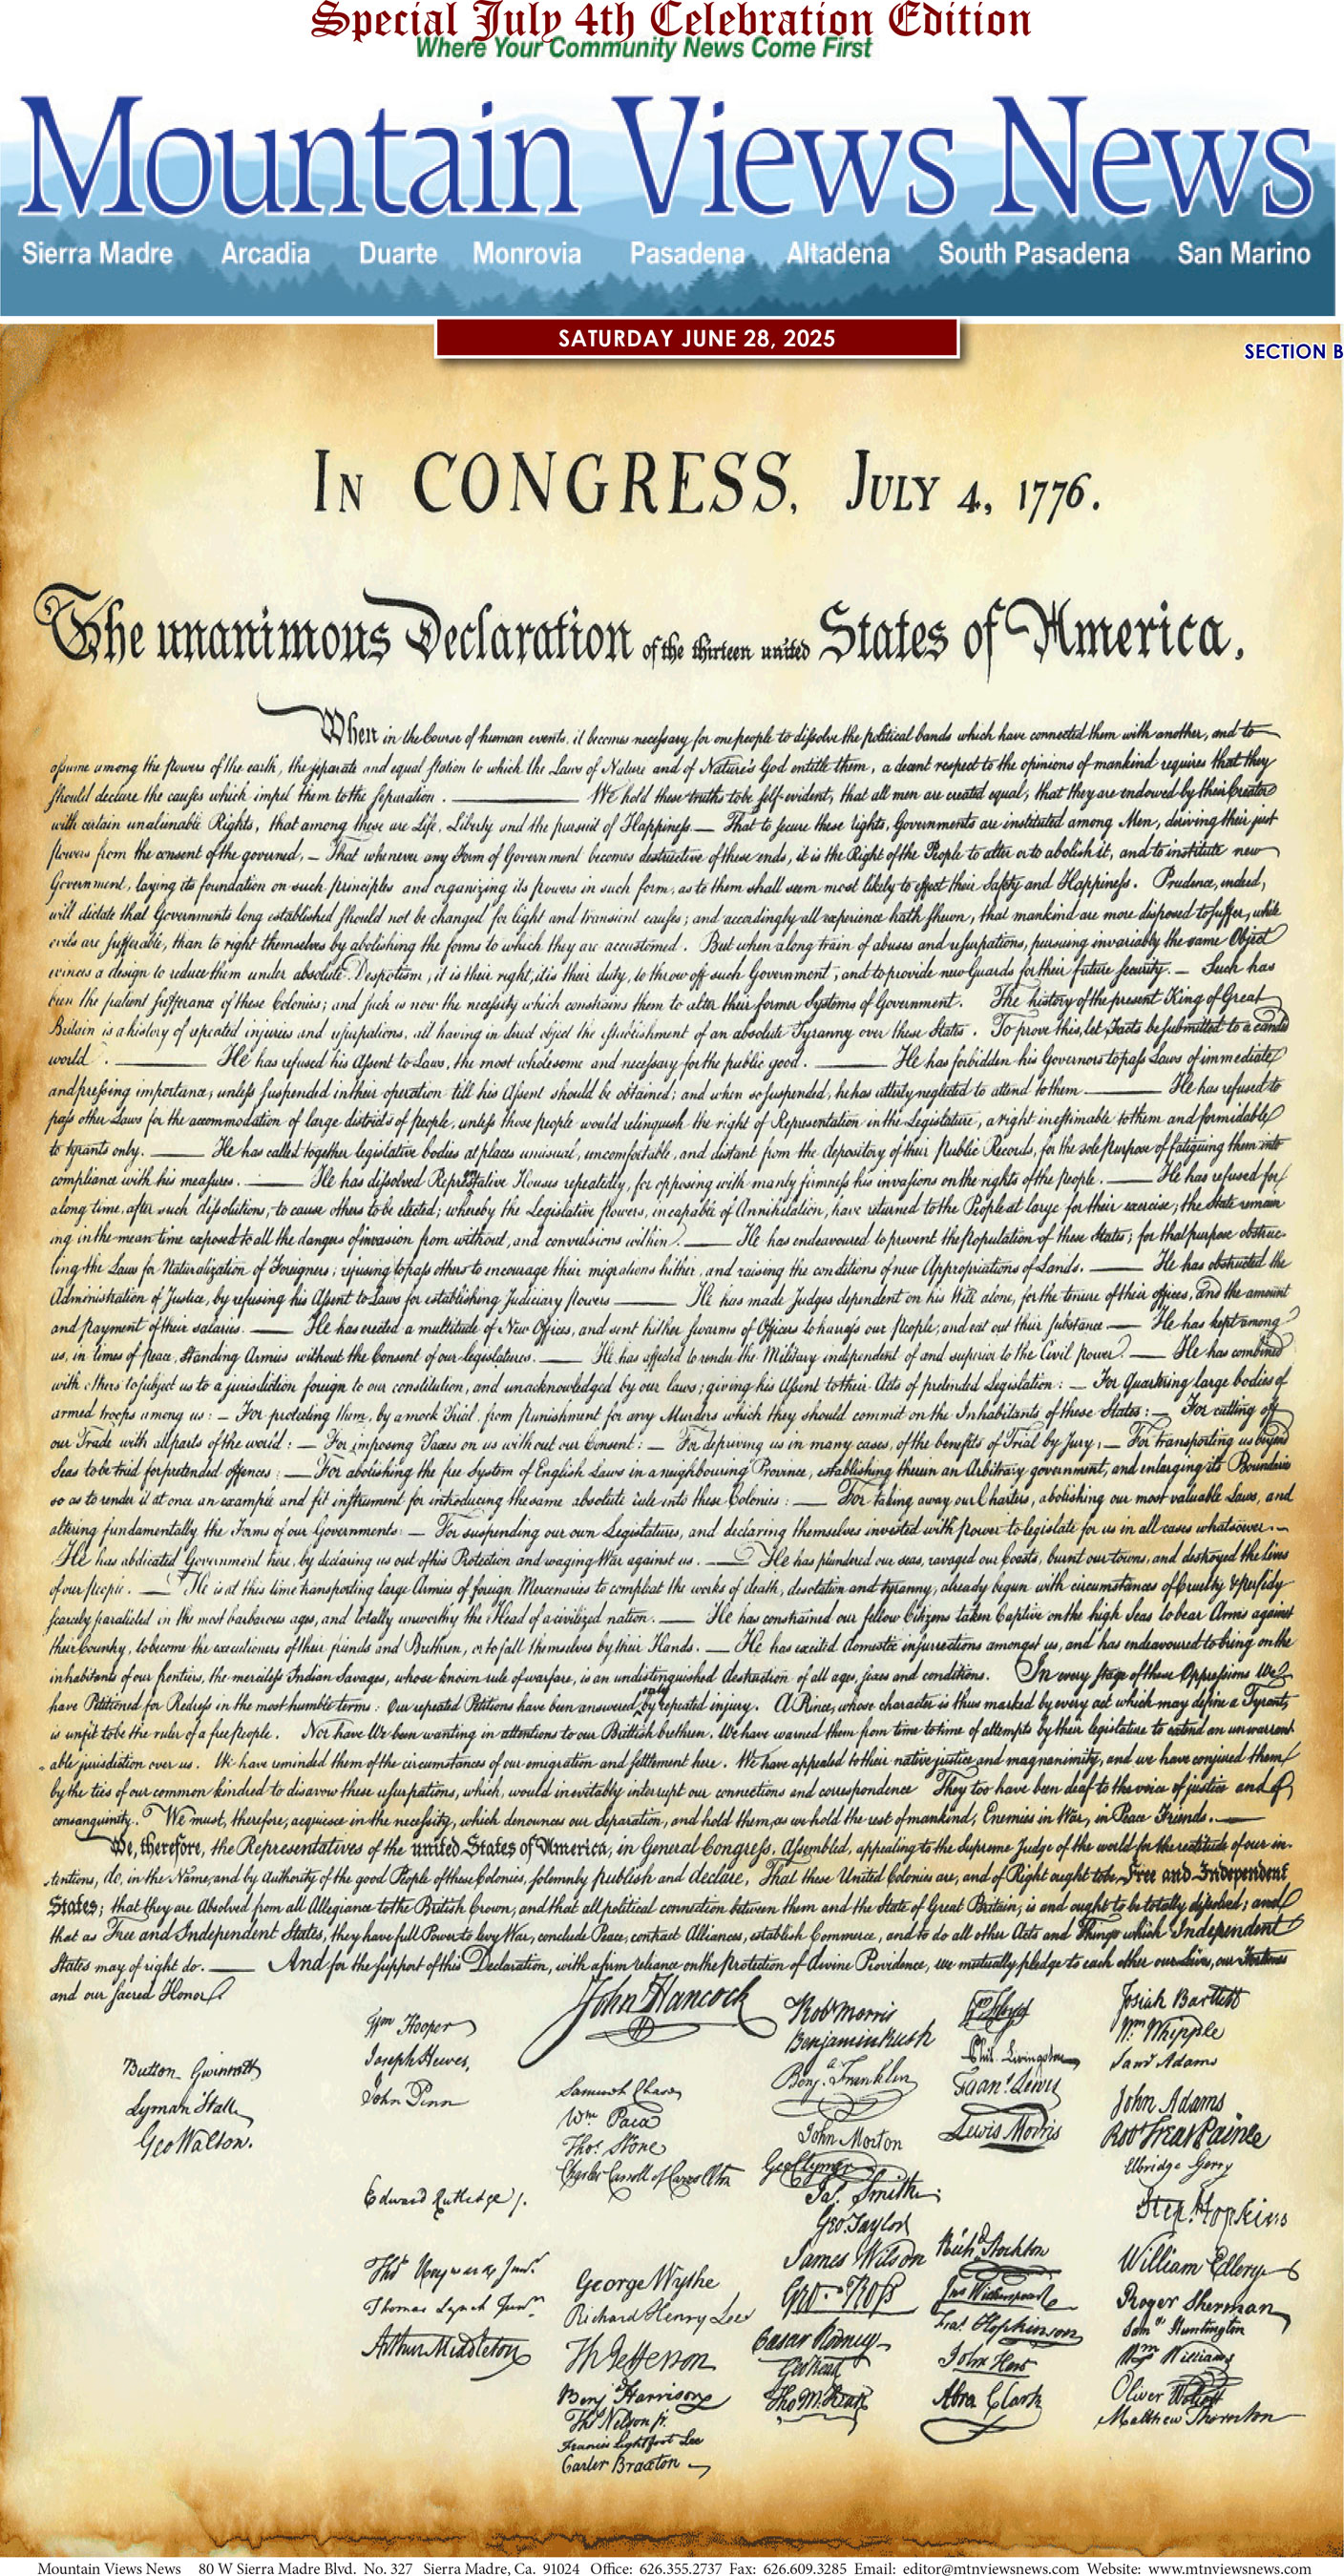 Special July 4th Celebration Edition
Where Your Community News Come First
Mountain Views News
Sierra Madre Arcadia Duarte Monrovia Pasadena Altadena South Pasadena San Marino
SATURDAY JUNE 28, 2025
SECTION B
IN CONGRESS, JULY 4, 1776.
The unanimous Declaration of the thirteen united States of America,
When in the Course of human events, it becomes necessary for one people to dissolve the political bands which have connected them with another, and to
assume among the powers of the earth, the separate and equal station to which the Laws of Nature and of Nature's God entitle them, a decent respect to the opinions of mankind requires that they
should declare the causes which impel them to the separation. ——— We hold these truths to be self-evident, that all men are created equal, that they are endowed by their Creator
with certain unalienable Rights, that among these are Life, Liberty and the pursuit of Happiness.— That to secure these rights, Governments are instituted among Men, deriving their just
powers from the consent of the governed, — That whenever any Form of Government becomes destructive of these ends, it is the Right of the People to alter or to abolish it, and to institute new
Government, laying its foundation on such principles and organizing its powers in such form, as to them shall seem most likely to effect their Safety and Happiness. Prudence, indeed,
will dictate that Governments long established should not be changed for light and transient causes; and accordingly all experience hath shewn, that mankind are more disposed to suffer, while
evils are sufferable, than to right themselves by abolishing the forms to which they are accustomed. But when a long train of abuses and usurpations, pursuing invariably the same Object
evinces a design to reduce them under absolute Despotism, it is their right, it is their duty, to throw off such Government, and to provide new Guards for their future security. — Such has
been the patient sufferance of these Colonies; and such is now the necessity which constrains them to alter their former Systems of Government. The history of the present King of Great
Britain is a history of repeated injuries and usurpations, all having in direct object the establishment of an absolute Tyranny over these States. To prove this, let Facts be submitted to a candid
world. ——— He has refused his Assent to Laws, the most wholesome and necessary for the public good. ——— He has forbidden his Governors to pass Laws of immediate
and pressing importance, unless suspended in their operation till his Assent should be obtained; and when so suspended, he has utterly neglected to attend to them ——— He has refused to
pass other Laws for the accommodation of large districts of people, unless those people would relinquish the right of Representation in the Legislature, a right inestimable to them and formidable
to tyrants only. ——— He has called together legislative bodies at places unusual, uncomfortable, and distant from the depository of their Public Records, for the sole purpose of fatiguing them into
compliance with his measures. ——— He has dissolved Representative Houses repeatedly, for opposing with manly firmness his invasions on the rights of the people. ——— He has refused for
a long time, after such dissolutions, to cause others to be elected; whereby the Legislative powers, incapable of Annihilation, have returned to the People at large for their exercise; the State remain
ing in the mean time exposed to all the dangers of invasion from without, and convulsions within. ——— He has endeavoured to prevent the population of these States; for that purpose obstruc-
ting the Laws for Naturalization of Foreigners; refusing to pass others to encourage their migrations hither, and raising the conditions of new Appropriations of Lands. ——— He has obstructed the
Administration of Justice, by refusing his Assent to Laws for establishing Judiciary powers ——— He has made Judges dependent on his Will alone, for the tenure of their offices, and the amount
and payment of their salaries. ——— He has erected a multitude of New Offices, and sent hither swarms of Officers to harrass our people, and eat out their substance — He has kept among
us, in times of peace, Standing Armies without the Consent of our legislatures. ——— He has affected to render the Military independent of and superior to the Civil power. — He has combined
with others to subject us to a jurisdiction foreign to our constitution, and unacknowledged by our laws; giving his Assent to their Acts of pretended Legislation: — For Quartering large bodies of
armed troops among us: — For protecting them, by a mock Trial, from punishment for any Murders which they should commit on the Inhabitants of these States: — For cutting off
our Trade with all parts of the world: — For imposing Taxes on us without our Consent: — For depriving us in many cases, of the benefits of Trial by Jury; — For transporting us beyond
Seas to be tried for pretended offences — For abolishing the free System of English Laws in a neighbouring Province, establishing therein an Arbitrary government, and enlarging its Boundaries
so as to render it at once an example and fit instrument for introducing the same absolute rule into these Colonies: ——— For taking away our Charters, abolishing our most valuable Laws, and
altering fundamentally the Forms of our Governments: — For suspending our own Legislatures, and declaring themselves invested with power to legislate for us in all cases whatsoever. —
He has abdicated Government here, by declaring us out of his Protection and waging War against us. ——— He has plundered our seas, ravaged our Coasts, burnt our towns, and destroyed the lives
of our people. ——— He is at this time transporting large Armies of foreign Mercenaries to compleat the works of death, desolation and tyranny, already begun with circumstances of Cruelty & perfidy
scarcely paralleled in the most barbarous ages, and totally unworthy the Head of a civilized nation. ——— He has constrained our fellow Citizens taken Captive on the high Seas to bear Arms against
their Country, to become the executioners of their friends and Brethren, or to fall themselves by their Hands. — He has excited domestic insurrections amongst us, and has endeavoured to bring on the
inhabitants of our frontiers, the merciless Indian Savages, whose known rule of warfare, is an undistinguished destruction of all ages, sexes and conditions. In every stage of these Oppressions We
have Petitioned for Redress in the most humble terms: Our repeated Petitions have been answered only by repeated injury. A Prince, whose character is thus marked by every act which may define a Tyrant,
is unfit to be the ruler of a free people. Nor have We been wanting in attentions to our Brittish brethren. We have warned them from time to time of attempts by their legislature to extend an unwarrant
able jurisdiction over us. We have reminded them of the circumstances of our emigration and settlement here. We have appealed to their native justice and magnanimity, and we have conjured them
by the ties of our common kindred to disavow these usurpations, which, would inevitably interrupt our connections and correspondence They too have been deaf to the voice of justice and of
consanguinity. We must, therefore, acquiesce in the necessity, which denounces our Separation, and hold them, as we hold the rest of mankind, Enemies in War, in Peace Friends. ——
We, therefore, the Representatives of the united States of America, in General Congress, Assembled, appealing to the Supreme Judge of the world for the rectitude of our in-
tentions, do, in the Name, and by Authority of the good People of these Colonies, solemnly publish and declare, That these United Colonies are, and of Right ought to be Free and Independent
States; that they are Absolved from all Allegiance to the British Crown, and that all political connection between them and the State of Great Britain, is and ought to be totally dissolved; and
that as Free and Independent States, they have full Power to levy War, conclude Peace, contract Alliances, establish Commerce, and to do all other Acts and Things which Independent
States may of right do. ——— And for the support of this Declaration, with a firm reliance on the Protection of divine Providence, we mutually pledge to each other our Lives, our Fortunes
and our sacred Honor.
Button Gwinnett
Lyman Hall
Geo Walton.
Wm Hooper
Joseph Hewes,
John Penn
Edward Rutledge /.
Thos Heyward Junr.
Thomas Lynch Junr.
Arthur Middleton
John Hancock
Samuel Chase
Wm. Paca
Thos. Stone
Charles Carroll of Carrollton
George Wythe
Richard Henry Lee
Th Jefferson
Benj Harrison
Thos Nelson jr.
Francis Lightfoot Lee
Carter Braxton
Robt Morris
Benjamin Rush
Benj. Franklin
John Morton
Geo Clymer
Jas. Smith
Geo. Taylor
James Wilson
Geo. Ross
Caesar Rodney
Geo Read
Tho M:Kean
Wm Floyd
Phil. Livingston
Frans. Lewis
Lewis Morris
Richd. Stockton
Jno Witherspoon
Fras. Hopkinson
John Hart
Abra Clark
Josiah Bartlett
Wm. Whipple
Saml Adams
John Adams
Robt Treat Paine
Elbridge Gerry
Step. Hopkins
William Ellery
Roger Sherman
Saml Huntington
Wm Williams
Oliver Wolcott
Matthew Thornton
Mountain Views News 80 W Sierra Madre Blvd. No. 327 Sierra Madre, Ca. 91024 Office: 626.355.2737 Fax: 626.609.3285 Email: editor@mtnviewsnews.com Website: www.mtnviewsnews.com